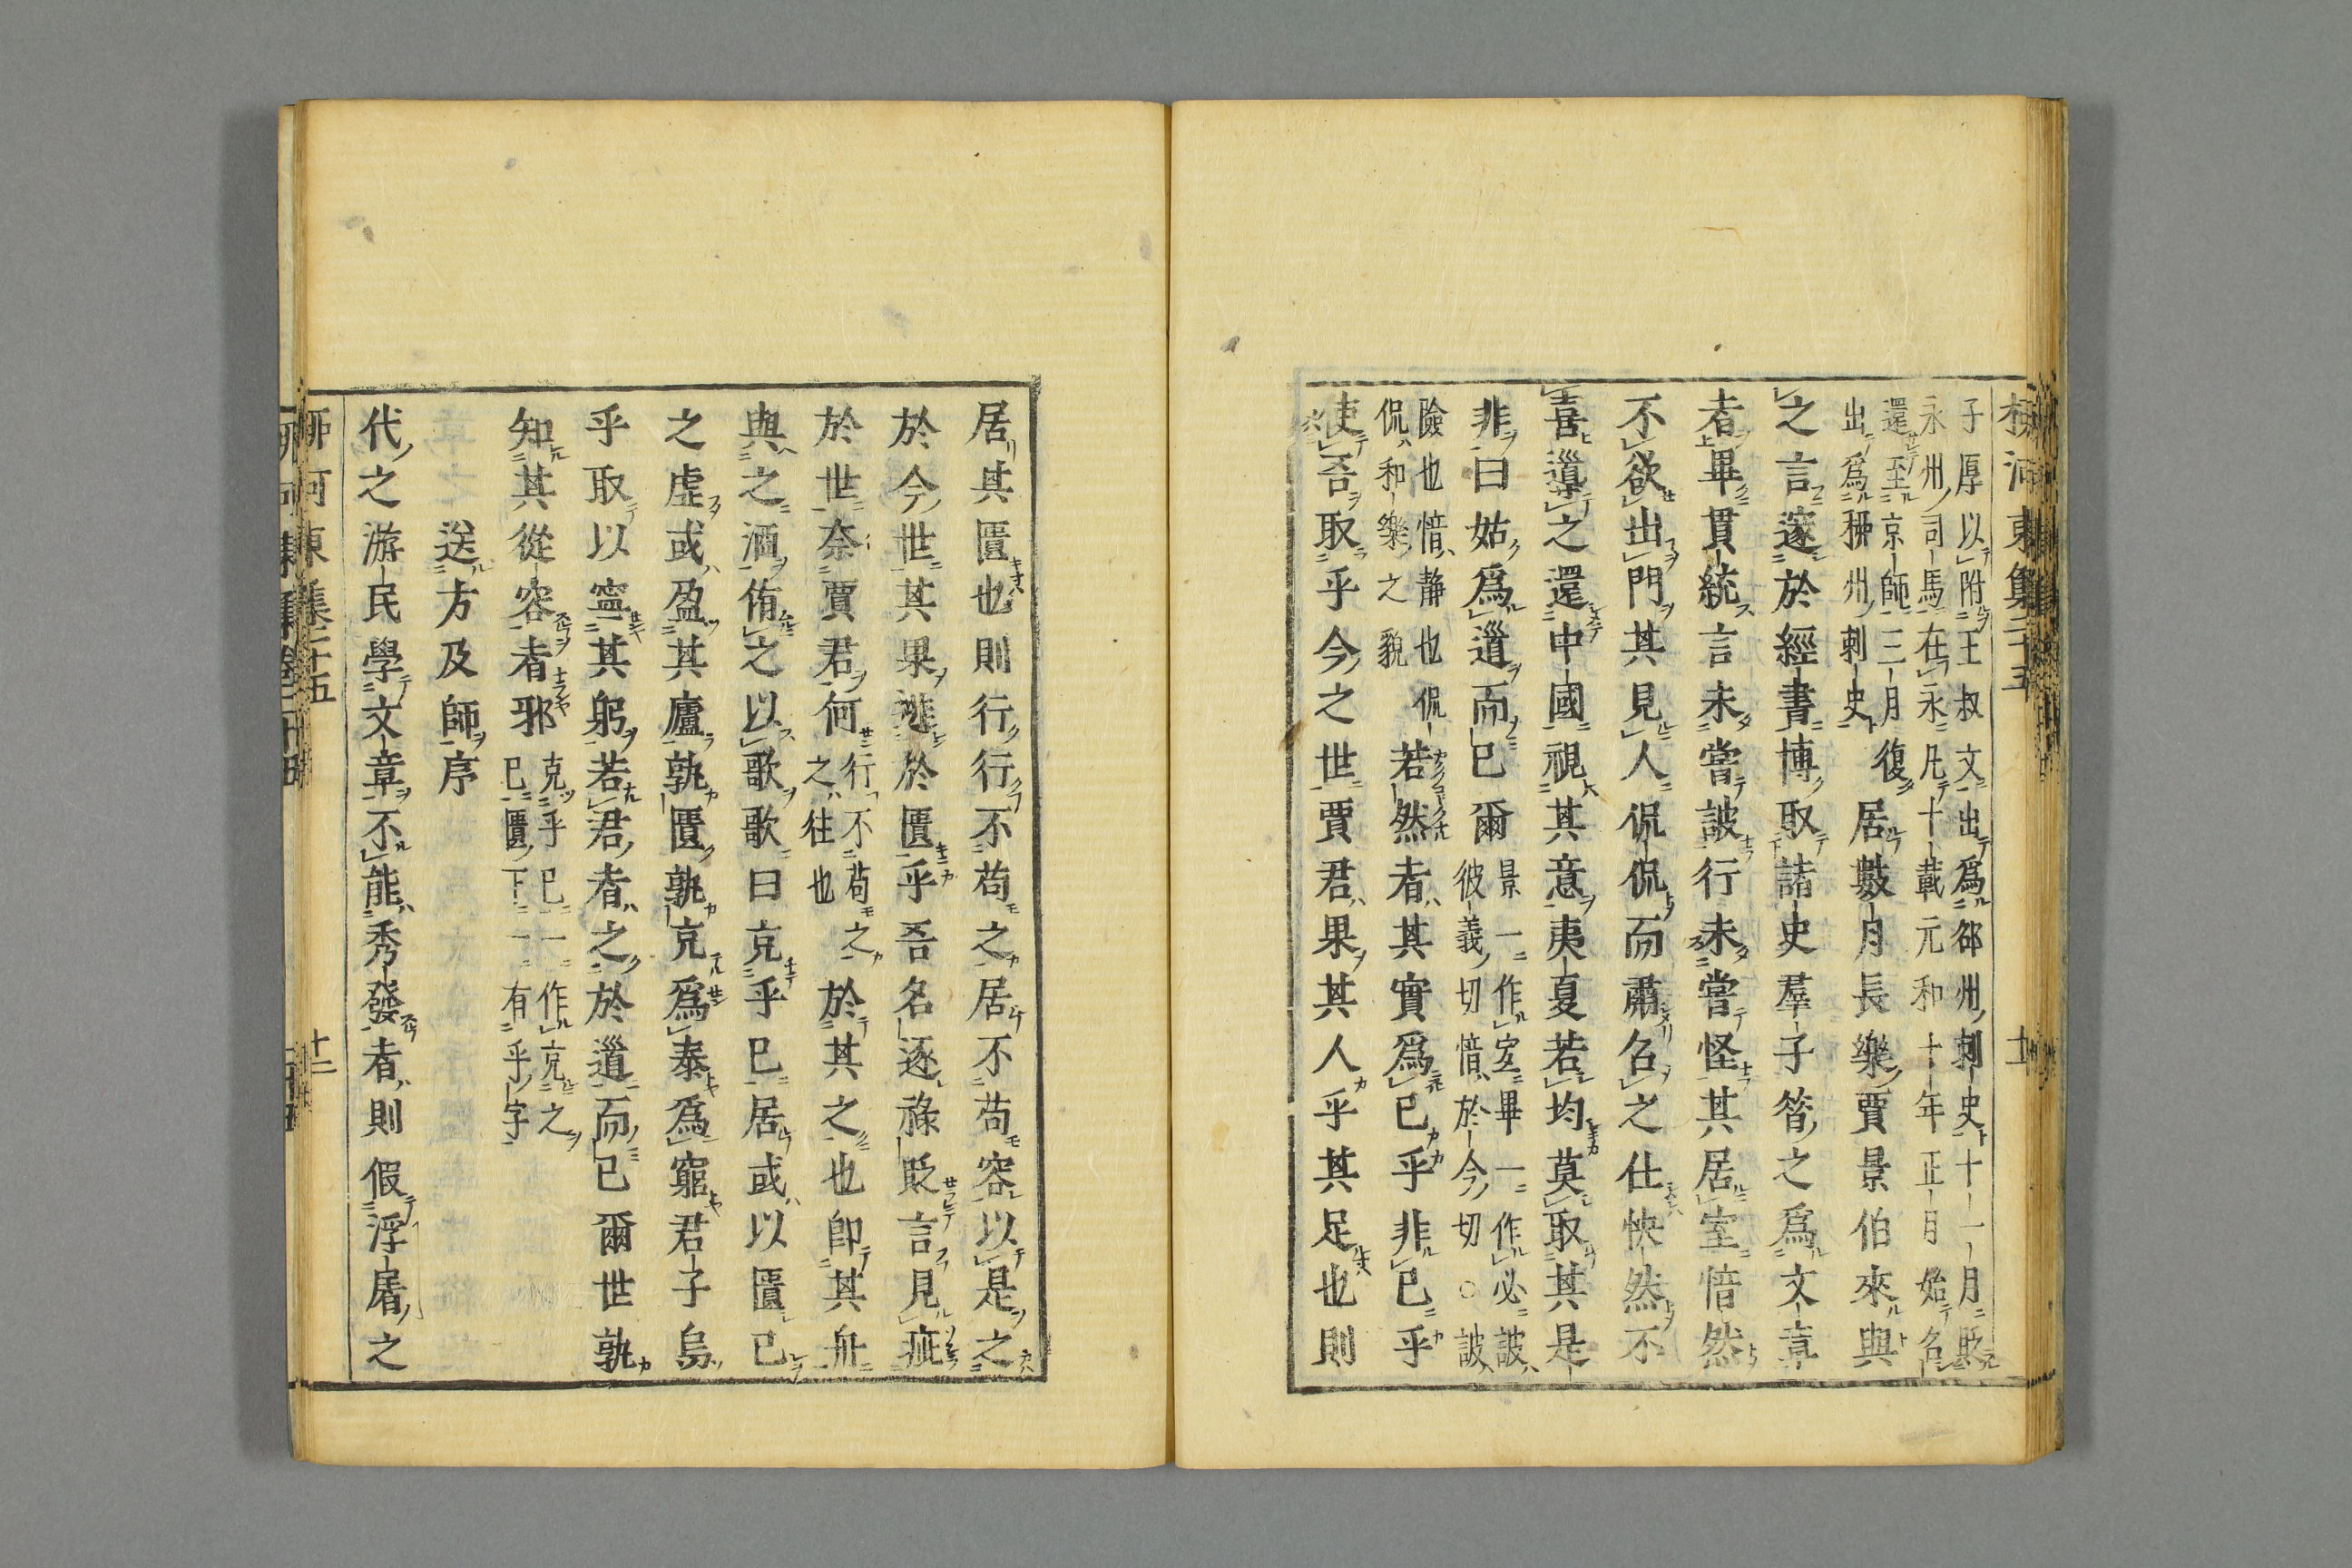 柳河東集二十五 十一
子厚以附王叔文出爲邵州刺史十一月貶
永州司馬在永凡十載元和十年正月始名
還至京師三月復
出爲柳州刺史
居數月長樂賈景伯來與
之言邃於經書博取諸史羣子昝之爲文章
者畢貫統言未嘗詖行未嘗怪其居室愔然
不欲出門其見人侃侃而肅名之仕怏然不
喜導之還中國視其意夷夏若均莫取其是
非曰姑爲道而已爾景一作宏畢一作必詖
彼義切愔於今切○詖
險也愔静也侃
侃和樂之貌
若然者其實爲已乎非已乎
使吾取乎今之世賈君果其人乎其足也則
居其匱也則行行不苟之居不苟容以是之
於今世其果逃於匱乎吾名逐祿貶言見疵
於世奈賈君何行不苟之
之往也
於其之也卽其舟
與之酒侑之以歌歌曰克乎已居或以匱已
之虛或盈其廬孰匱孰克爲泰爲窮君子烏
乎取以寧其躬若君者之於道而已爾世孰
知其從容者邪克乎已一作克之
已匱下一有乎字
送方及師序
代之游民學文章不能秀發者則假浮屠之
柳河東集二十五 十二